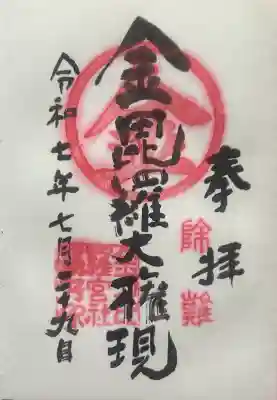 奉拝
除難
金毘羅大権現
金
令和七年七月二十九日